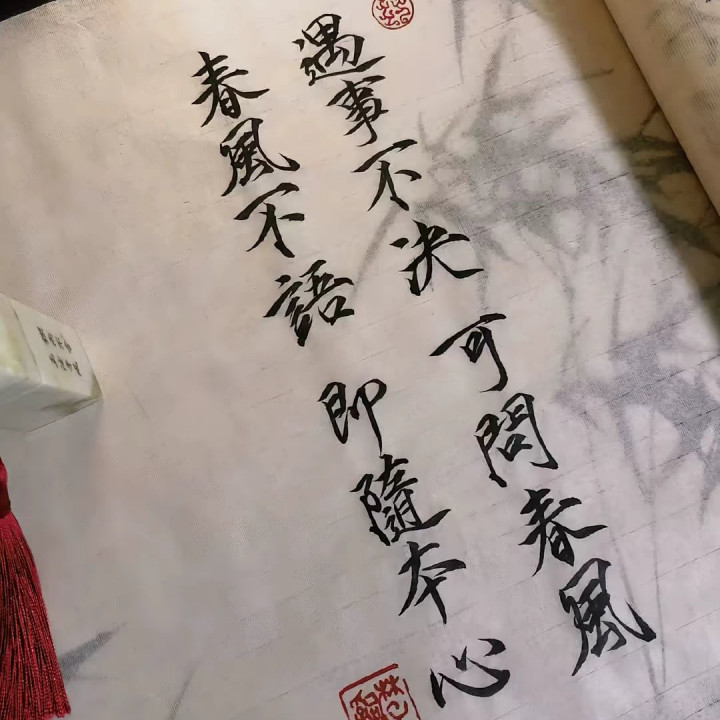 遇事不决 可問春風
春風不語 即隨本心